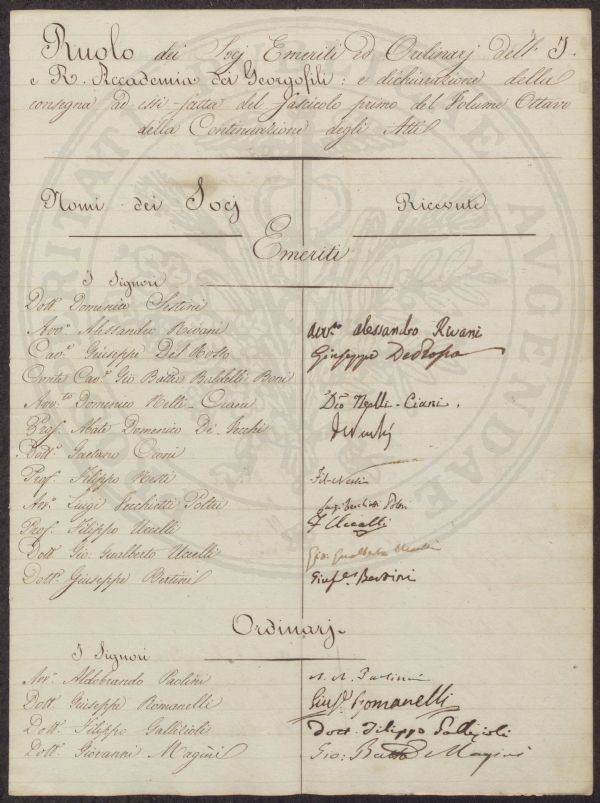 Ruolo dei Socj Emeriti ed Ordinarj dell' I.
e R. Accademia dei Georgofili: e dichiarazione della
consegna ad essi fatta del fascicolo primo del Volume Ottavo
della Continuazione degli Atti
Nomi dei Socj
Ricevute
Emeriti
I Signori
Dott. Domenico Sestini
Avv. Alessandro Rivani
Avv.to Alessandro Rivani
Cav. Giuseppe Del Rosso
Giuseppe Del Rosso
Conte Cav. Gio Batta Baldelli Boni
Avv.to Domenico Nelli-Ciani
D.co Nelli-Ciani.
Prof. Abate Domenico De' Vecchi
Dott. Gaetano
Prof. Filippo Nesti
F. Nesti
Avv. Luigi Sacchetti Poltri
Luigi Poltri
Prof. Filippo Uccelli
F. Uccelli
Dott. Gio. Gualberto Uccelli
Gio. Gualberto Uccelli
Dott. Giuseppe Bertini
Gius.e Bertini
Ordinarj.
I Signori
Avv. Aldobrando Paolini
A. Paolini
Dott. Giuseppe Romanelli
Gius. Romanelli
Dott. Filippo Gallizioli
Dott. Filippo Gallizioli
Dott. Giovanni Magini
Gio: Batta Magini